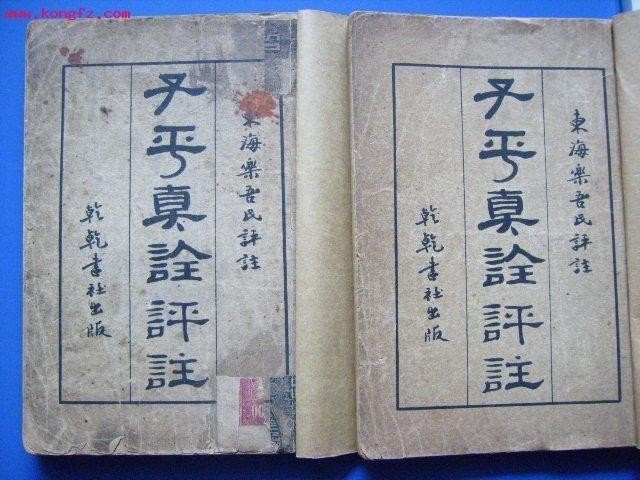 www.kongfz.com
東海樂吾氏評註
子平真詮評註
乾乾書社出版
東海樂吾氏評註
子平真詮評註
乾乾書社出版